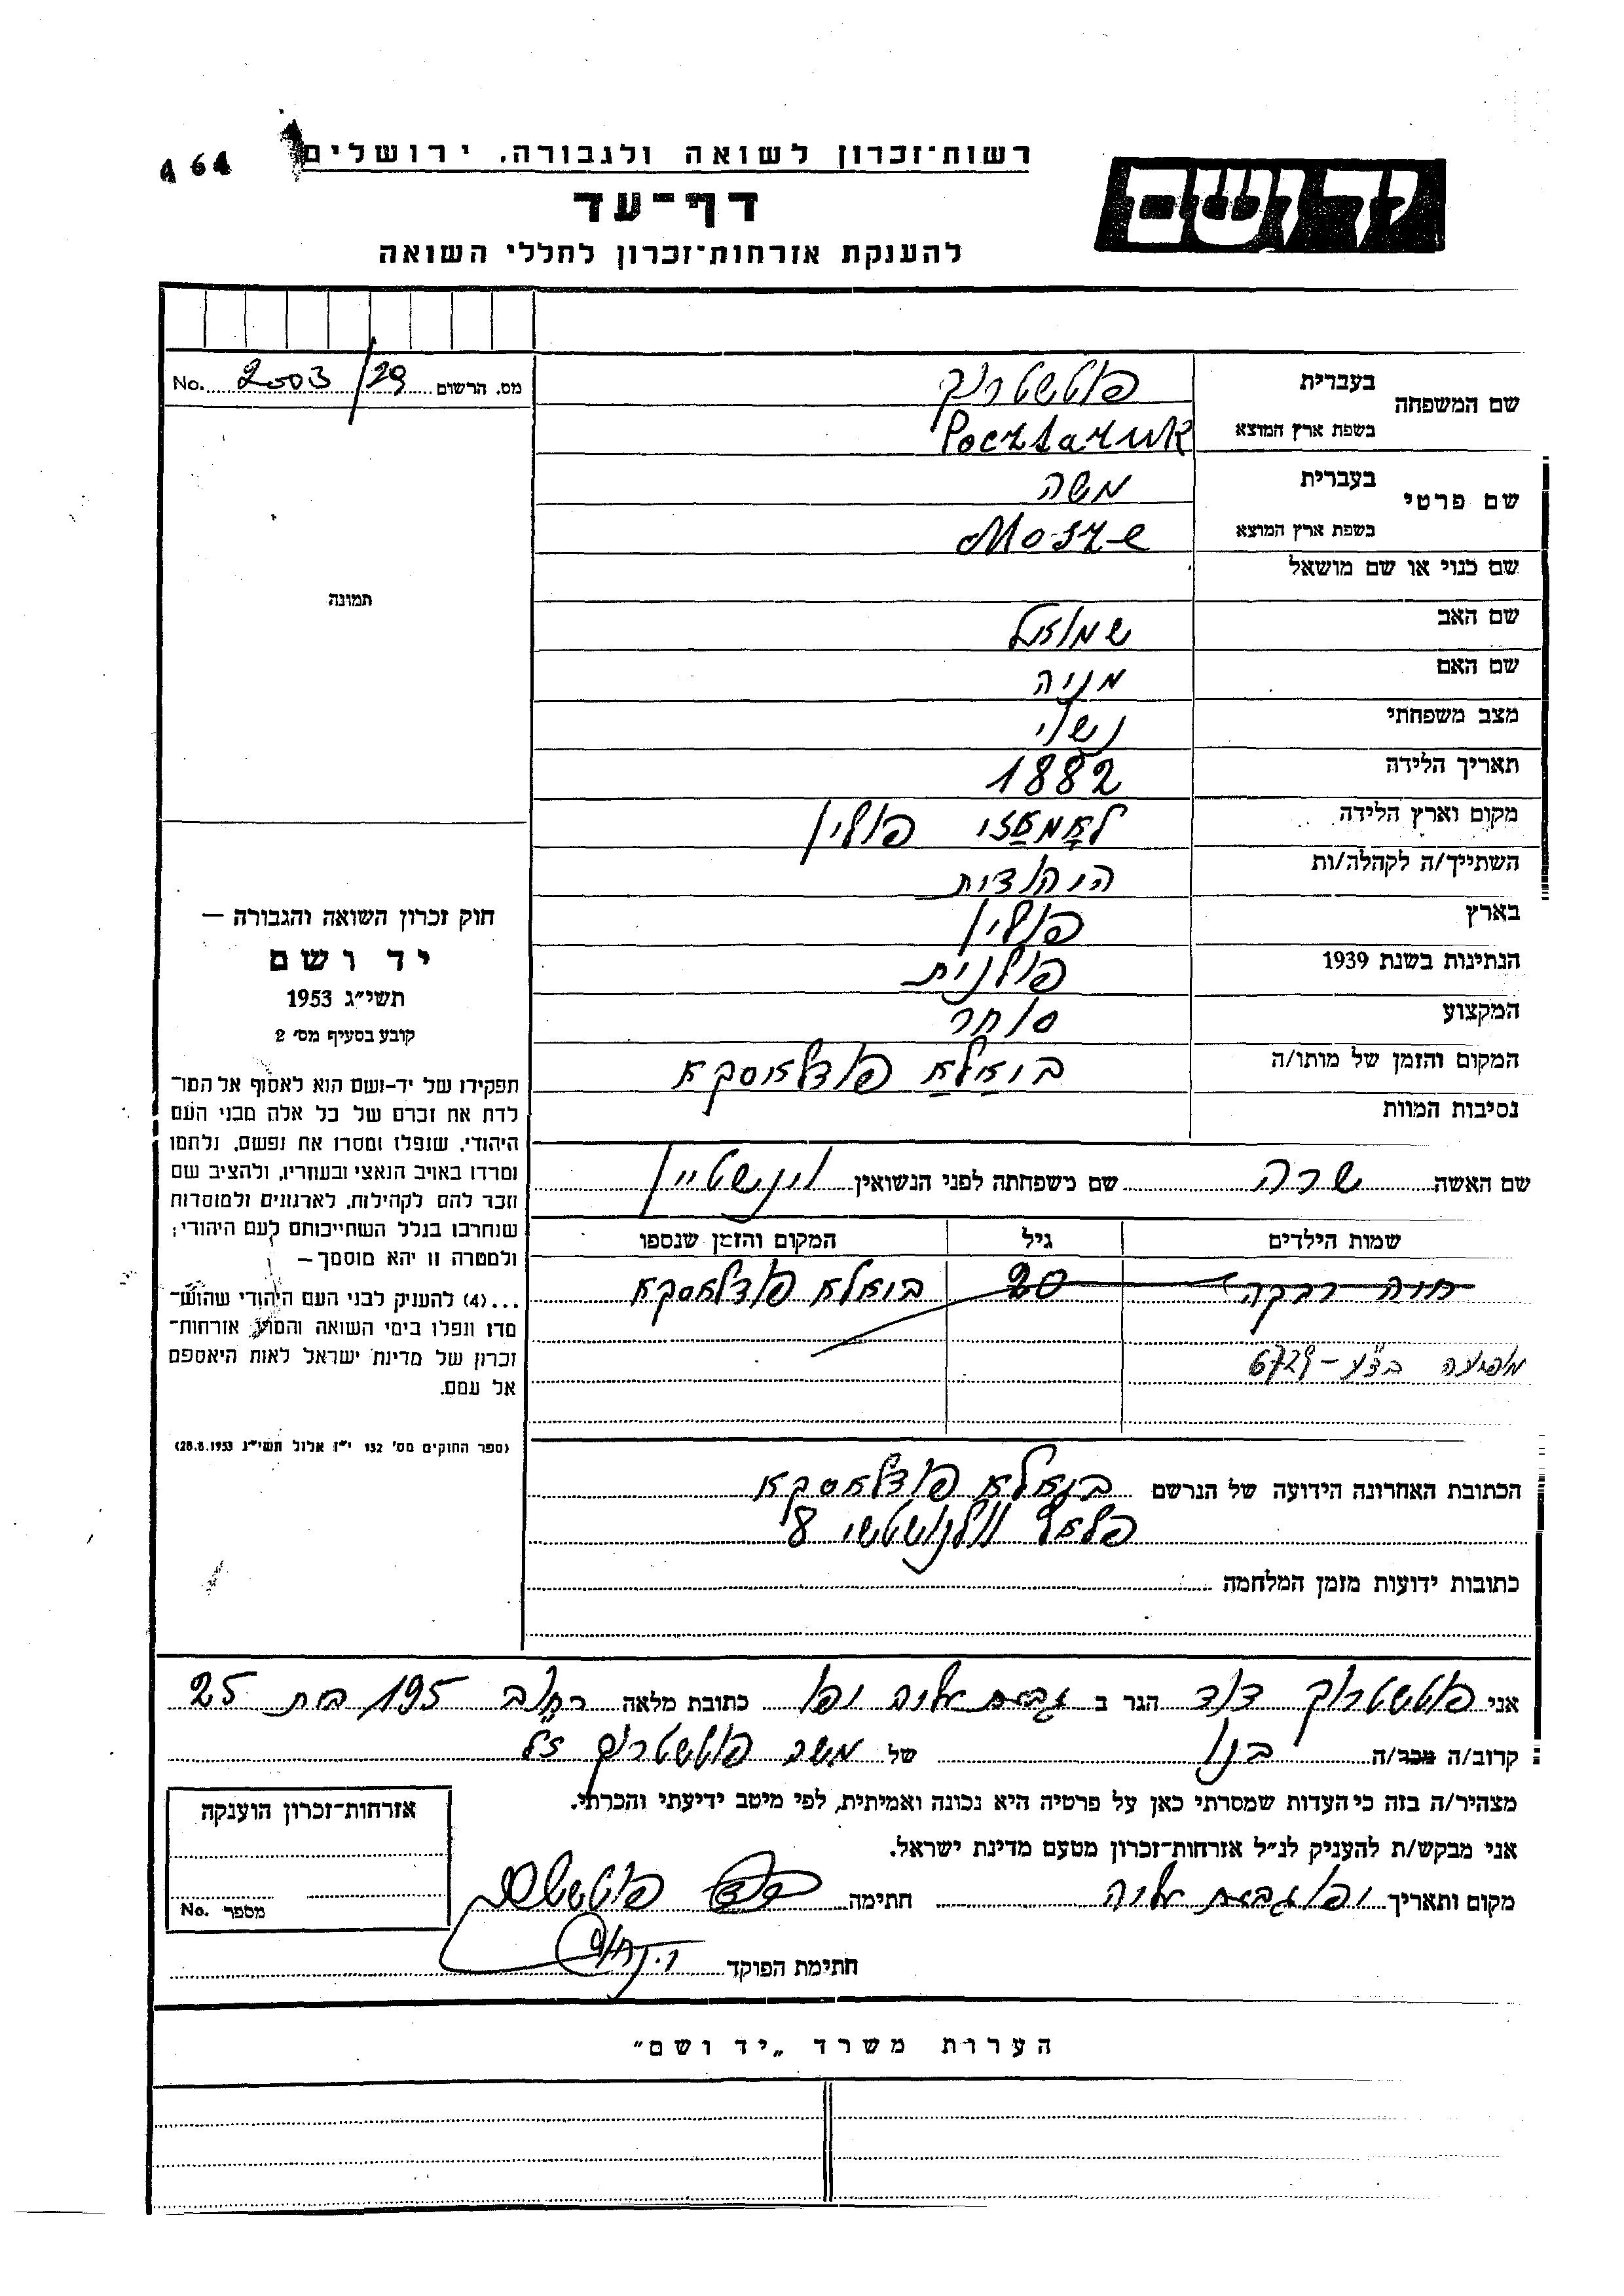 A 64
רשות־זכרון לשואה ולגבורה, ירושלים
יד ושם
דף־עד
להענקת אזרחות־זכרון לחללי השואה
מס. הרשום 2003/29 No.
שם המשפחה בעברית פוטשטרוק
בשפת ארץ המוצא Pocztaruk
שם פרטי בעברית משה
בשפת ארץ המוצא Mosze
תמונה
שם כנוי או שם מושאל
שם האב שמואל
שם האם מניה
מצב משפחתי נשוי
תאריך הלידה 1882
מקום וארץ הלידה לאמאזי פולין
השתייך/ה לקהלה/ות היהודית
בארץ פולין
הנתינות בשנת 1939 פולנית
המקצוע סוחר
המקום והזמן של מותו/ה ביאלא פודלאסקא
נסיבות המוות
שם האשה שרה שם משפחתה לפני הנשואין וינשטיין
שמות הילדים גיל המקום והזמן שנספו
חוה רבקה 20 ביאלא פודלאסקא
מופיעה בדע - 6729
חוק זכרון השואה והגבורה —
יד ושם
תשי״ג 1953
קובע בסעיף מס׳ 2
תפקידו של יד-ושם הוא לאסוף אל המו־
לדת את זכרם של כל אלה מבני העם
היהודי, שנפלו ומסרו את נפשם, נלחמו
ומרדו באויב הנאצי ובעוזריו, ולהציב שם
וזכר להם לקהילות, לארגונים ולמוסדות
שנחרבו בגלל השתייכותם לעם היהודי;
ולמטרה זו יהא מוסמך—
...(4) להעניק לבני העם היהודי שהוש־
מדו ונפלו בימי השואה והמרי אזרחות־
זכרון של מדינת ישראל לאות היאספם
אל עמם.
(ספר החוקים מס׳ 132 י״ז אלול תשי״ג 28.8.1953)
הכתובת האחרונה הידועה של הנרשם ביאלא פודלאסקא
פלאץ וולנושטשי 8
כתובות ידועות מזמן המלחמה
אני פוטשטרוק דוד הגר ב גבעת אליה יפו כתובת מלאה רחוב 195 בית 25
קרוב/ה מכר/ה בנו של משה פוטשטרוק ז"ל
מצהיר/ה בזה כי העדות שמסרתי כאן על פרטיה היא נכונה ואמיתית, לפי מיטב ידיעתי והכרתי.
אני מבקש/ת להעניק לנ״ל אזרחות־זכרון מטעם מדינת ישראל.
מקום ותאריך יפו גבעת אליה חתימה
חתימת הפוקד
אזרחות־זכרון הוענקה
מספר No.
הערות משרד „יד ושם״